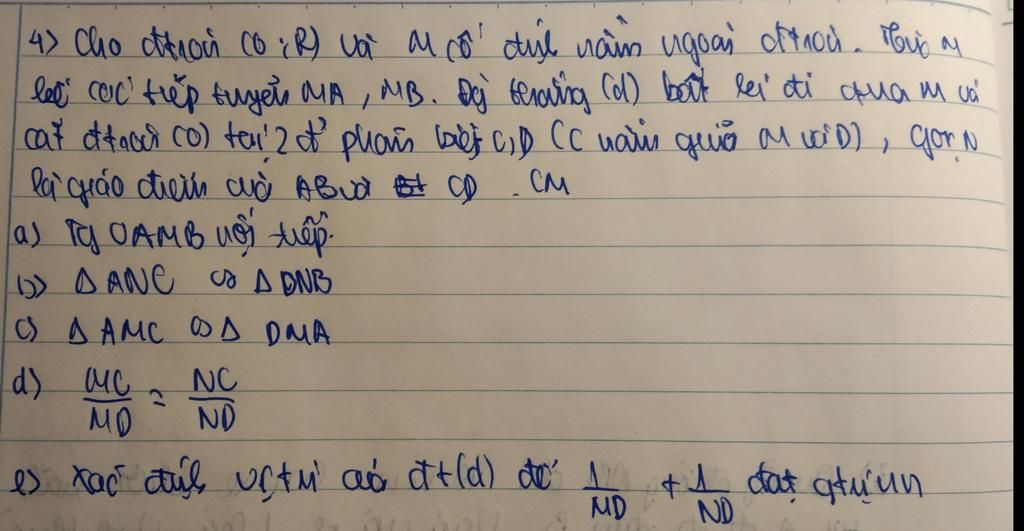 4) Cho đtròn (O;R) và M cố định nằm ngoài đtròn. Từ M
kẻ các tiếp tuyến MA, MB. Đg thẳng (d) bất kì đi qua M và
cắt đtròn (O) tại 2 đ' phân biệt C,D (C nằm giữa M và D), gọi N
là giao điểm của AB và CD. CM
a) Tg OAMB nội tiếp.
b) Δ ANC ∽ Δ DNB
c) Δ AMC ∽ Δ DMA
d) MC/MD = NC/ND
e) Xác định vị trí của đt(d) để 1/MD + 1/ND đạt gtrị nn